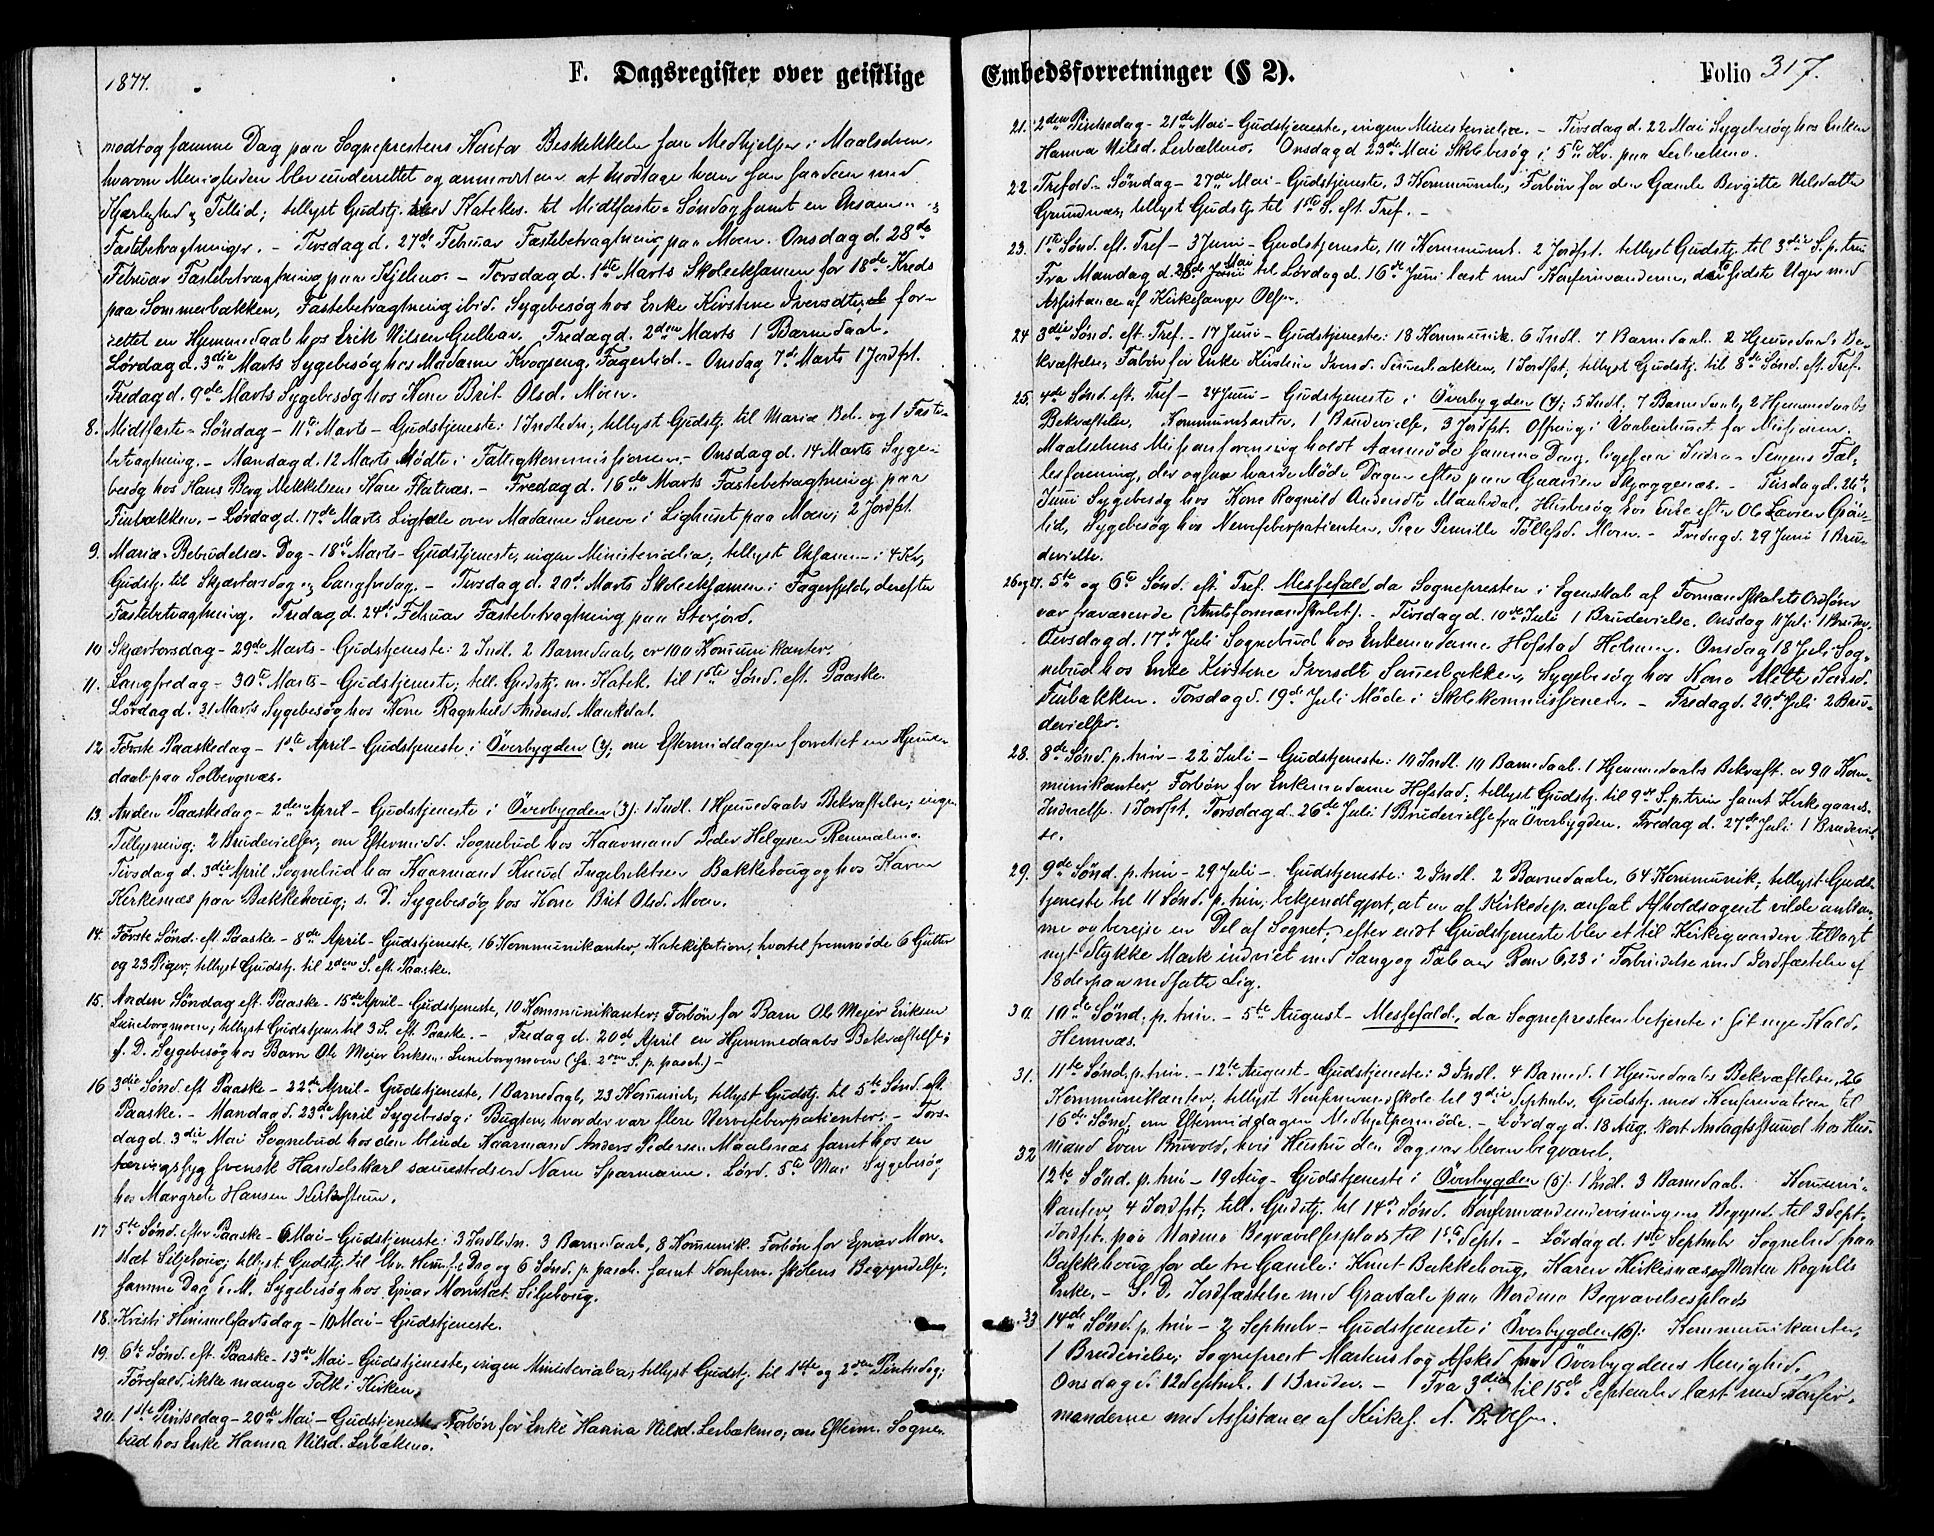 1877.
F. Dagsregister over geistlige
modtog samme Dag paa Sogneprestens Beskikkelse som Medhjelper i Maalselven,
hvorom Menigheden blev underrettet og anmodet om at modtage ham som saadan med
Kjærlighed og Tillid; tillyst Gudstj. med Katekes. til Midfaste-Søndag samt en Eksamen og
Fastebetragtninger. - Tirsdag d. 27de Februar Fastebetragtning paa Moen. Onsdag d. 28de
Februar Fastebetragtning paa Kjelmo. - Torsdag d. 1ste Marts Skoleeksamen for 18de Kreds
paa Sommerbakken, Fastebetragtning ibid. Sygebesøg hos Enke Kirstine Iversdtr, for-
rettet en Hjemmedaab hos Erik Nilsen Gulhav. Fredag d. 2den Marts 1 Barnedaab.
Lørdag d. 3die Marts Sygebesøg hos Madame Krogseng, Fagerlid. - Onsdag 7de Marts 1 Jordfst.
Fredag d. 9de Marts Sygebesøg hos Kone Brit Olsd. Moen.
8. Midfaste-Søndag - 11te Marts - Gudstjeneste: 1 Indledn; tillyst Gudstj. til Mariæ Beb. og 1 Faste-
betragtning. - Mandag d. 12 Marts Møde i Fattigkommissionen. - Onsdag d. 14 Marts Syge-
besøg hos Hans Berg Mikkelsens Kone Flatnæs. - Fredag d. 16de Marts Fastebetragtning paa
Finbakken. - Lørdag d. 17de Marts Ligtale over Madame Sneve i Lighuset paa Moen; 2 Jordfst.
9. Mariæ-Bebudelses-Dag - 18te Marts - Gudstjeneste, ingen Ministerialia; tillyst Eksamen i 4 Kr,
Gudstj. til Skjærtorsdag og Langfredag. - Tirsdag d. 20de Marts Skoleeksamen i Fagerfjeld, derefter
Fastebetragtning. Fredag d. 24de Februar Fastebetragtning paa Storjord.
10 Skjærtorsdag - 29de Marts - Gudstjeneste: 2 Indl. 2 Barnedaab, cr 100 Kommunikanter.
11. Langfredag - 30te Marts - Gudstjeneste; till. Gudstj. m. Katek. til 1ste Sønd. eft. Paaske.
Lørdag d. 31 Marts Sygebesøg hos Kone Ragnhild Andersd. Maukdal.
12 Første Paaskedag - 1ste April - Gudstjeneste i Överbygden (2); om Eftermiddagen forrettet en Hjemme-
daab paa Solbergnæs.
13. Anden Paaskedag - 2den April - Gudstjeneste i Överbygden (3): 1 Indl. 1 Hjemmedaabs Bekræftelse; ingen
Tillysning; 2 Brudevielser; om Eftermidd. Sognebud hos Kaarmand Peder Helgesen Rennalmo.
Tirsdag d. 3die April Sognebud hos Kaarmand Knud Ingebriktsen Bakkehoug og hos Karen
Kirkesnæs paa Bakkehoug; s. D. Sygebesøg hos Kone Brit Olsd. Moen.
14. Første Sønd. eft. Paaske - 8de April - Gudstjeneste, 16 Kommunikanter, Katekisation, hvortil fremmøde 6 Gutter
og 23 Piger; tillyst Gudstj. til 2den S. eft. Paaske.
15. Anden Søndag eft. Paaske - 15de April - Gudstjeneste, 10 Kommunikanter; Forbøn for Barn Ole Mejer Eriksen
Luneborgmoen; tillyst Gudstjen. til 3 S. eft. Paaske. - Fredag d. 20de April en Hjemmedaabs Bekræftelse;
s. D. Sygebesøg hos Barn Ole Mejer Eriksen Luneborgmoen (fr. 2den S. p. pasch.) -
16 3die Sønd. eft Paaske - 22de April - Gudstjeneste, 1 Barnedaab, 23 Kommunik, tillyst Gudstj. til 5te Sønd. eft.
Paaske. - Mandag d. 23de April Sygebesøg i Bugten, hvor der var flere Nervefeberpatienter. - Tors-
dag d. 3die Mai Sognebud hos den blinde Kaarmand Anders Pedersen Maalsnæs samt hos en
tæringssyg svensk Handelskarl sammesteds ved Navn Sparmann. Lørd. 5te Mai Sygebesøg
hos Margrete Hansen Kirkestuen.
17 5te Sønd. efter Paaske - 6 Mai - Gudstjeneste: 3 Indledn. 3 Barnedaab, 8 Kommunik. Forbøn for Ejnar Mon-
slæt Siljehoug; tillyst Gudstj. til Chr. Himf. Dag og 6 Sønd. p. pasch. samt Konferm. skolens Begyndelse;
samme Dag Sygebesøg hos Ejnar Monslæt Siljehoug.
18. Kristi Himmelfartsdag - 10 Mai - Gudstjeneste.
19. 6te Sønd. eft. Paaske - 13de Mai - Gudstjeneste, ingen Ministerialia; tillyst Gudstj. til 1ste og 2den Pintsedag;
Førefald, ikke mange Folk i Kirken.
20. 1ste Pintsedag - 20de Mai - Gudstjeneste Forbøn for Enke Hanna Nilsd. Lerbækmo; om Efterm. Sogne-
bud hos Enke Hanna Nilsd. Lerbækmo.
Embedsforretninger (§ 2).
Folio 317.
21. 2den Pintsedag - 21de Mai - Gudstjeneste, ingen Ministerialia. - Tirsdag d. 22 Mai Sygebesøg hos Enken
Hanna Nilsd. Lerbækmo. Onsdag d 23de Mai Skolebesøg i 5te Kr. paa Lerbækmo.
22 Trefold.-Søndag - 27de Mai - Gudstjeneste, 3 Kommunik, Forbøn for den Gamle Bergitte Nilsdatter
Grundnæs, tillyst Gudstj. til 1ste S. eft. Tref. -
23. 1ste Sønd. eft. Tref - 3 Juni - Gudstjeneste, 10 Kommunik. 2 Jordfst. tillyst Gudstj. til 3die S. p. trin
Fra Mandag d. 28de Mai til Lørdag d. 16de Juni læst med Konfirmanderne, den sidste Uge med
Assistance af Kirkesanger Olsen.
24 3die Sønd. eft. Tref. - 17 Juni - Gudstjeneste: 18 Kommunik. 6 Indl. 7 Barnedaab. 2 Hjemmedaabs Be-
kræftelse, Forbøn for Enke Kirstine Iversd. Sommerbakken, 1 Jordfst; tillyst Gudstj. til 8de Sønd. eft. Tref.
25. 4de Sønd. eft. Tref - 24 Juni - Gudstjeneste i Överbygden (4): 5 Indl. 7 Barnedaab, 2 Hjemmedaabs
Bekræftelse, Kommunikanter, 1 Brudevielse, 3 Jordfst. Offring i Vaabenhuset for Missionen.
Maalselvens Missionsforening holdt Aarsmøde samme Dag, ligesaa Indre-Senjens Fæl-
lesforening, der ogsaa havde Møde Dagen efter paa Gaarden Skjæggenæs. - Tirsdag d. 26de
Juni Sygebesøg hos Kone Ragnild Andersdtr Maukdal, Husbesøg hos Enke efter Ole Larsen Grøn-
lid, Sygebesøg hos Nervefeberpatienten, Pige Pernille Tollefsd. Moen. - Fredag d. 29 Juni 1 Bru-
devielse.
26 og 27. 5te og 6te Sønd. eft. Tref. Messefald da Sognepresten i Egenskab af Formandskabets Ordfører
var fraværende (Amtsformandskabet). - Tirsdag d. 10de Juli 1 Brudevielse. Onsdag 11 Juli 1 Brudev.
Tirsdag d. 17de Juli Sognebud hos Enkemadame Hofstad Holmen. Onsdag 18 Juli Sog-
nebud hos Enke Kirstine Iversdtr Sommerbakken, Sygebesøg hos Kone Mette Jansd.
Finbakken. Torsdag d. 19de Juli Møde i Skolekommissionen. - Fredag d. 20de Juli 2 Bru-
devielser.
28. 8de Sønd. p. trin - 22 Juli - Gudstjeneste: 10 Indl. 10 Barnedaab. 1 Hjemmedaabs Bekræft. cr 90 Kom-
munikanter, Forbøn for Enkemadame Hofstad; tillyst Gudstj. til 9de S. p. trin samt Kirkegaards-
Indvielse. 1 Jordfst. Torsdag d. 26de Juli 1 Brudevielse fra Överbygden. Fredag d. 27de Juli 1 Brudeviel-
se.
29. 9de Sønd. p. trin - 29 Juli - Gudstjeneste: 2 Indl. 2 Barnedaab, 64 Kommunik; tillyst Guds-
tjeneste til 11 Sønd. p. trin; bekjendtgjort, at en af Kirkedep. ansat Afholdsagent vilde ankom-
me og bereise en Del af Sognet; efter endt Gudstjeneste blev et til Kirkegaarden tillagt
nyt Stykke Mark indviet med Sang og Tale over Rom 6,23 i Forbindelse med Jordfæstelse af
18 derpaa nedsatte Lig.
30. 10de Sønd. p. trin. - 5te August - Messefald, da Sognepresten betjente i sit nye Kald,
Hemnæs.
31. 11te Sønd. p. trin. - 12te August - Gudstjeneste: 3 Indl. 4 Barned. 1 Hjemmedaabs Bekræftelse, 26
Kommunikanter; tillyst Konfermandskole til 3die Septembr. Gudstj. med Konfermation til
16de Sønd; om Eftermiddagen Medhjelpermøde. - Lørdag d. 18 Aug. kort Andagtsstund hos Hus-
mand Even Bruvold, hvis Hustru den Dag var bleven begravet.
32 12te Sønd. p. trin - 19 Aug - Gudstjeneste i Överbygden (5): 1 Indl. 3 Barnedaab. Kommuni-
kanter, 4 Jordfst; till. Gudstj. til 14de Sønd. Konfermandundervisningens Begynd. til 3 Sept.
Jordfst. paa Nordmo Begravelsesplads til 1ste Sept. - Lørdag d. 1ste Septembr Sognebud paa
Bakkehoug for de tre Gamle: Knut Bakkehoug, Karen Kirkesnæs og Morten Rognlis
Enke. - S. D. Jordfæstelse med Gravtale paa Nordmo Begravelsesplads
33 14de Sønd. p. trin - 2 Septembr - Gudstjeneste i Överbygden (6): Kommunikanter,
1 Brudevielse; Sogneprest Martens tog Afsked med Överbygdens Menighed.
Onsdag d. 12 Septembr. 1 Brudev. - Fra 3die til 15de September læst med Konfir-
manderne med Assistance af Kirkes. A. B. Olsen.